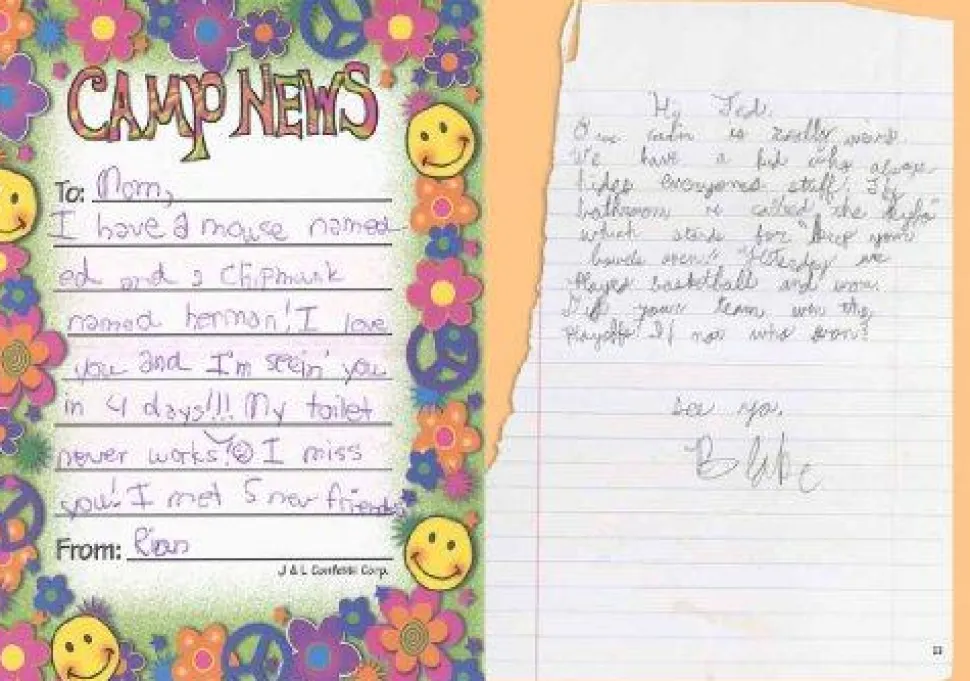 CAMP NEWS
To: Mom,
I have a mouse named
ed and a chipmunk
named herman! I love
you and I'm seein' you
in 4 days!!! My toilet
never works! I miss
you! I met 5 new friends
From: Rian
J & L Confetti Corp.
Hi Ted.
Our cabin is really
We have a kid who always
hides everyones stuff.
bathroom is called the "Kybo"
which stands for "keep your
bowels open." Yesterday we
played basketball and won.
Did your team win the
playoffs If not who won?
see ya.
Blake